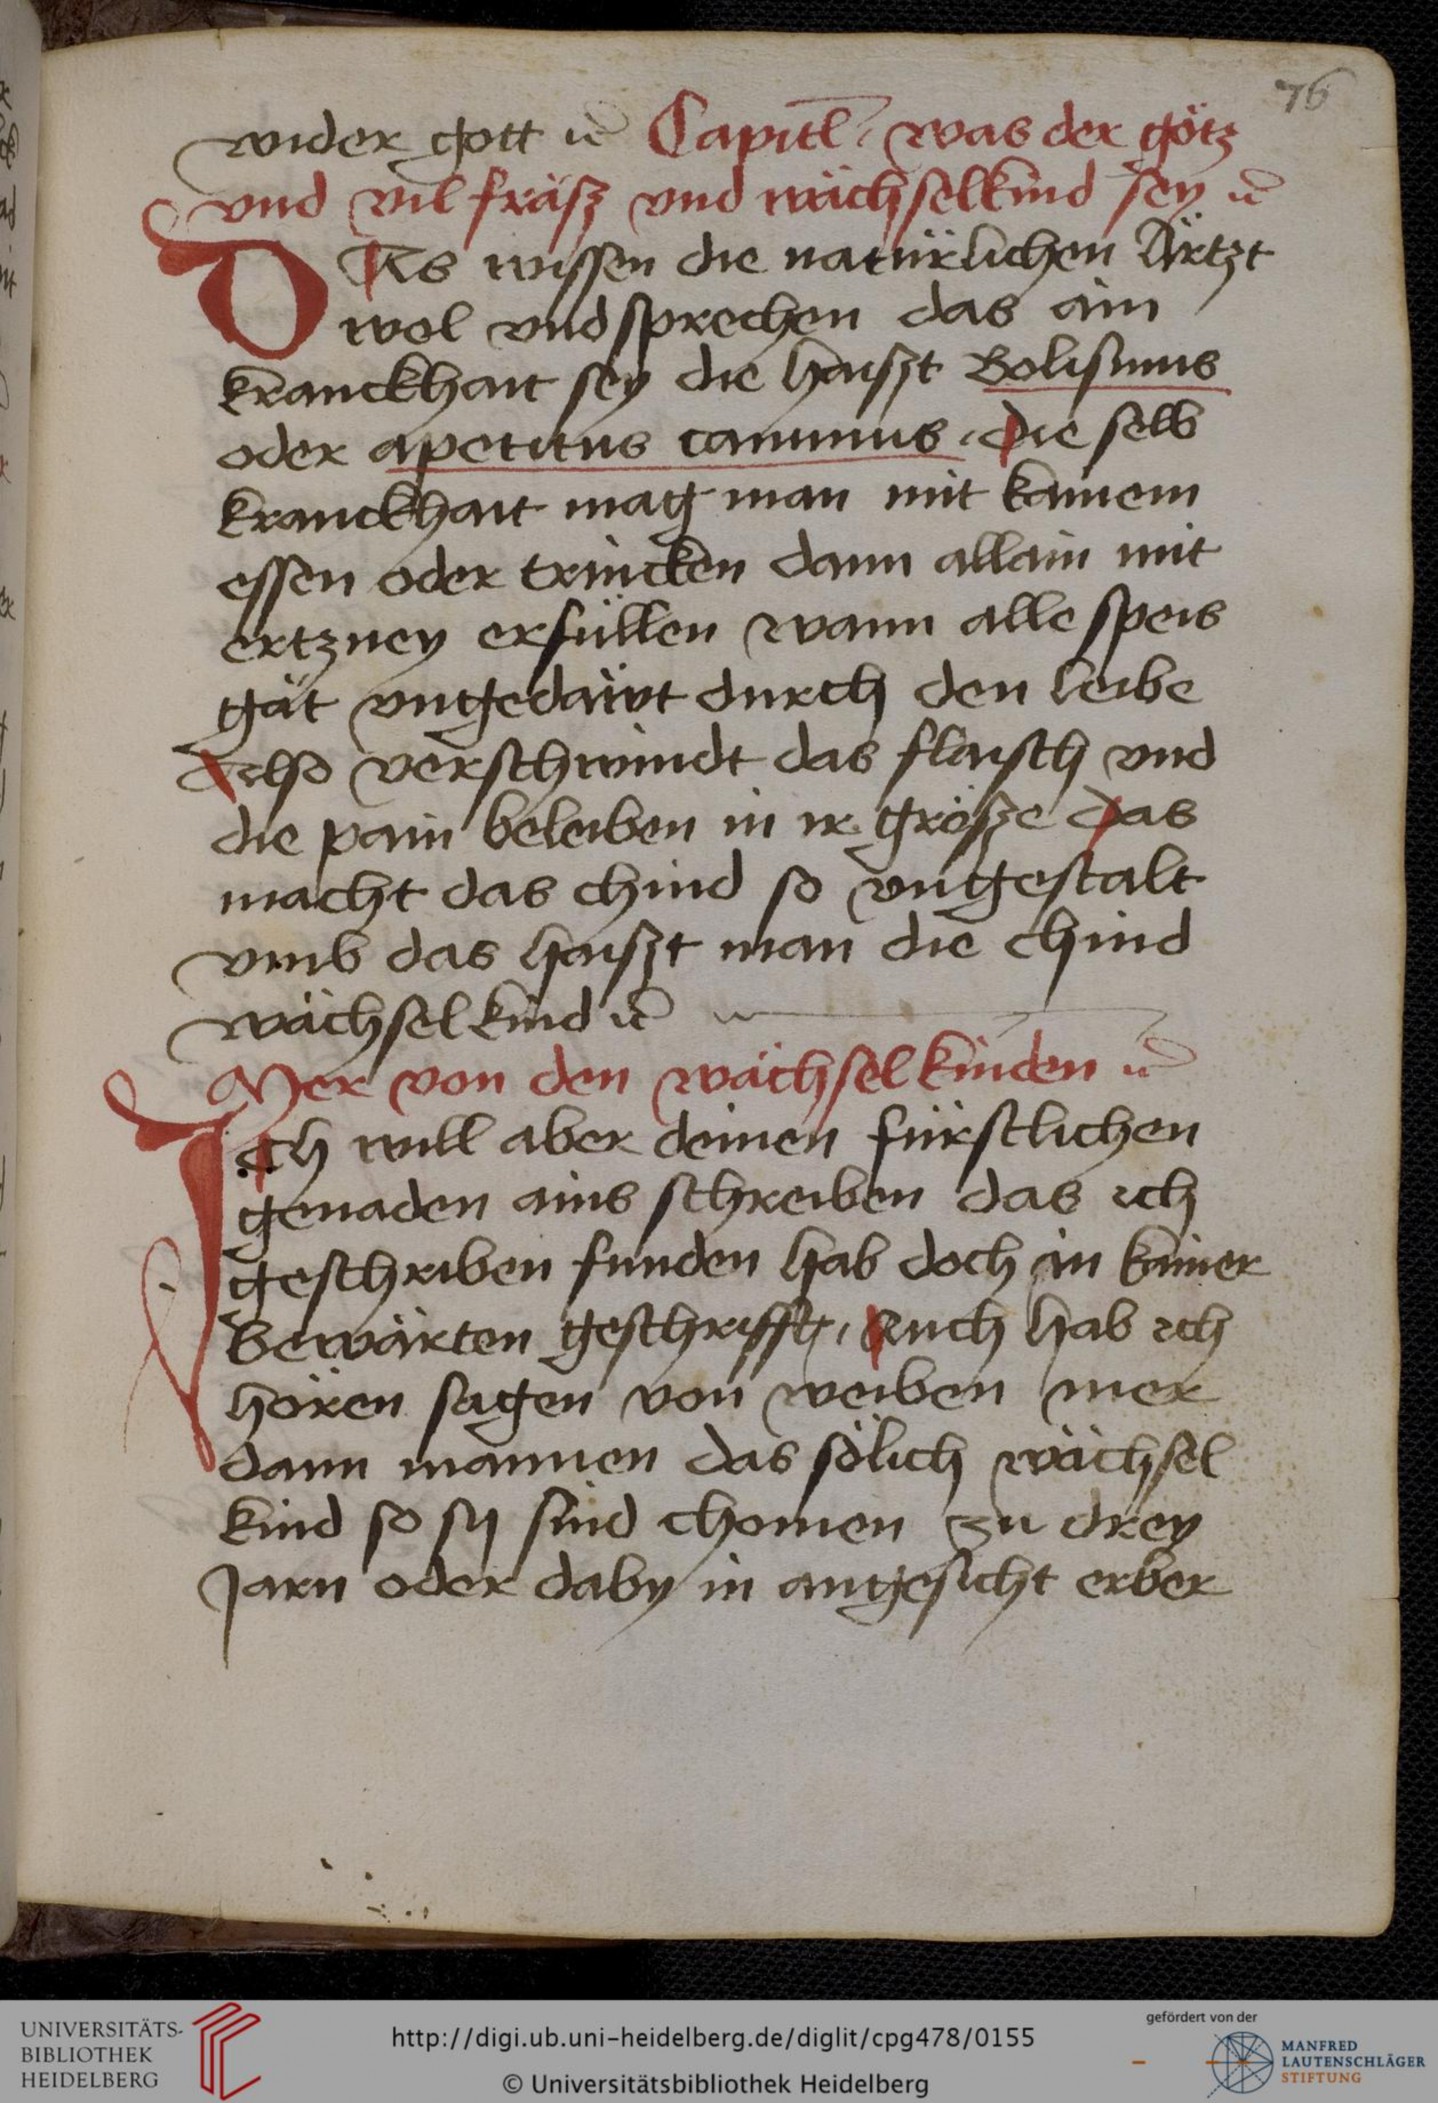 76
wider gott ⁊c̄ Capitl̄. was der götz
vnd vil fräsz vnd wächselkind sey ⁊c̄
DAs wissen die natürlichen Ärtzt
wol vnd sprechen das ain
kranckhait sey die haiszt Bolismus
oder apetitus caninus. die selb
kranckhait mag man mit kainem
essen oder trincken dann allain mit
ertzney erfüllen wann alle speis
gät vngedäwt durch den leibe
Also verschwindt das flaisch vnd
die pain beleiben in ir grösze das
macht das chind so vngestalt
vmb das haiszt man die chind
wächsel kind ⁊c̄
Mer von den wächsel kinden ⁊c̄
Ich will aber deinen fürstlichen
genaden ains schreiben das ich
geschriben funden hab doch in kainer
bewärten geschrifft, Auch hab ich
hören sagen von weiben mer
dann mannen das sölich wächsel
kind so sy sind chomen zu drey
Jarn oder daby in angesicht erber
UNIVERSITÄTS-
BIBLIOTHEK
HEIDELBERG
http://digi.ub.uni-heidelberg.de/diglit/cpg478/0155
© Universitätsbibliothek Heidelberg
gefördert von der
MANFRED
LAUTENSCHLÄGER
STIFTUNG